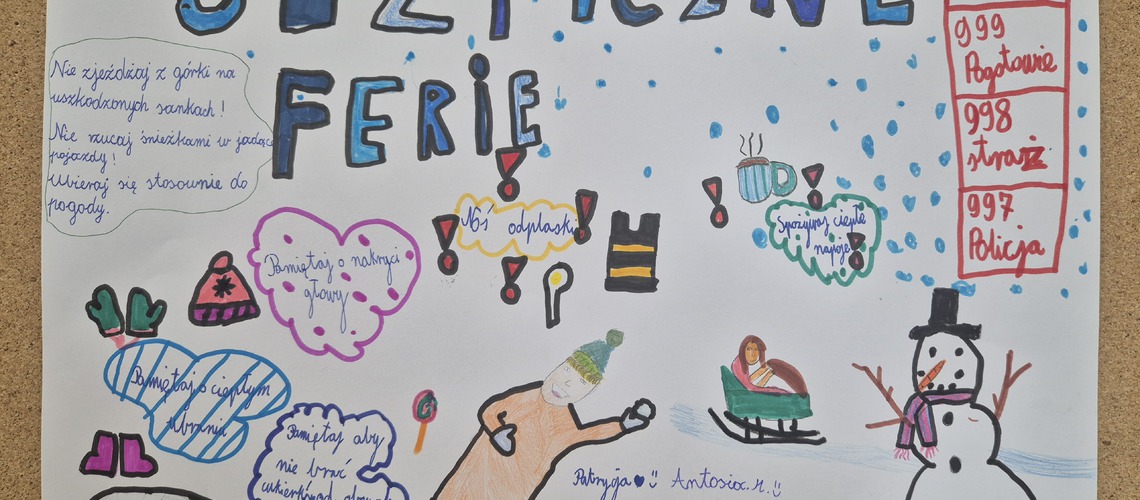 FERIE
Nie zjeżdżaj z górki na
uszkodzonych sankach!
Nie rzucaj śnieżkami w jadące
pojazdy!
Ubieraj się stosownie do
pogody.
999
Pogotowie
998
straż
997
Policja
Noś odplaski
Spożywaj ciepłe
napoje
Pamiętaj o nakryci
głowy
Pamiętaj o ciepłym
ubraniu
Pamiętaj aby
nie brać
cukierków od
Patrycja
Antosia.r.